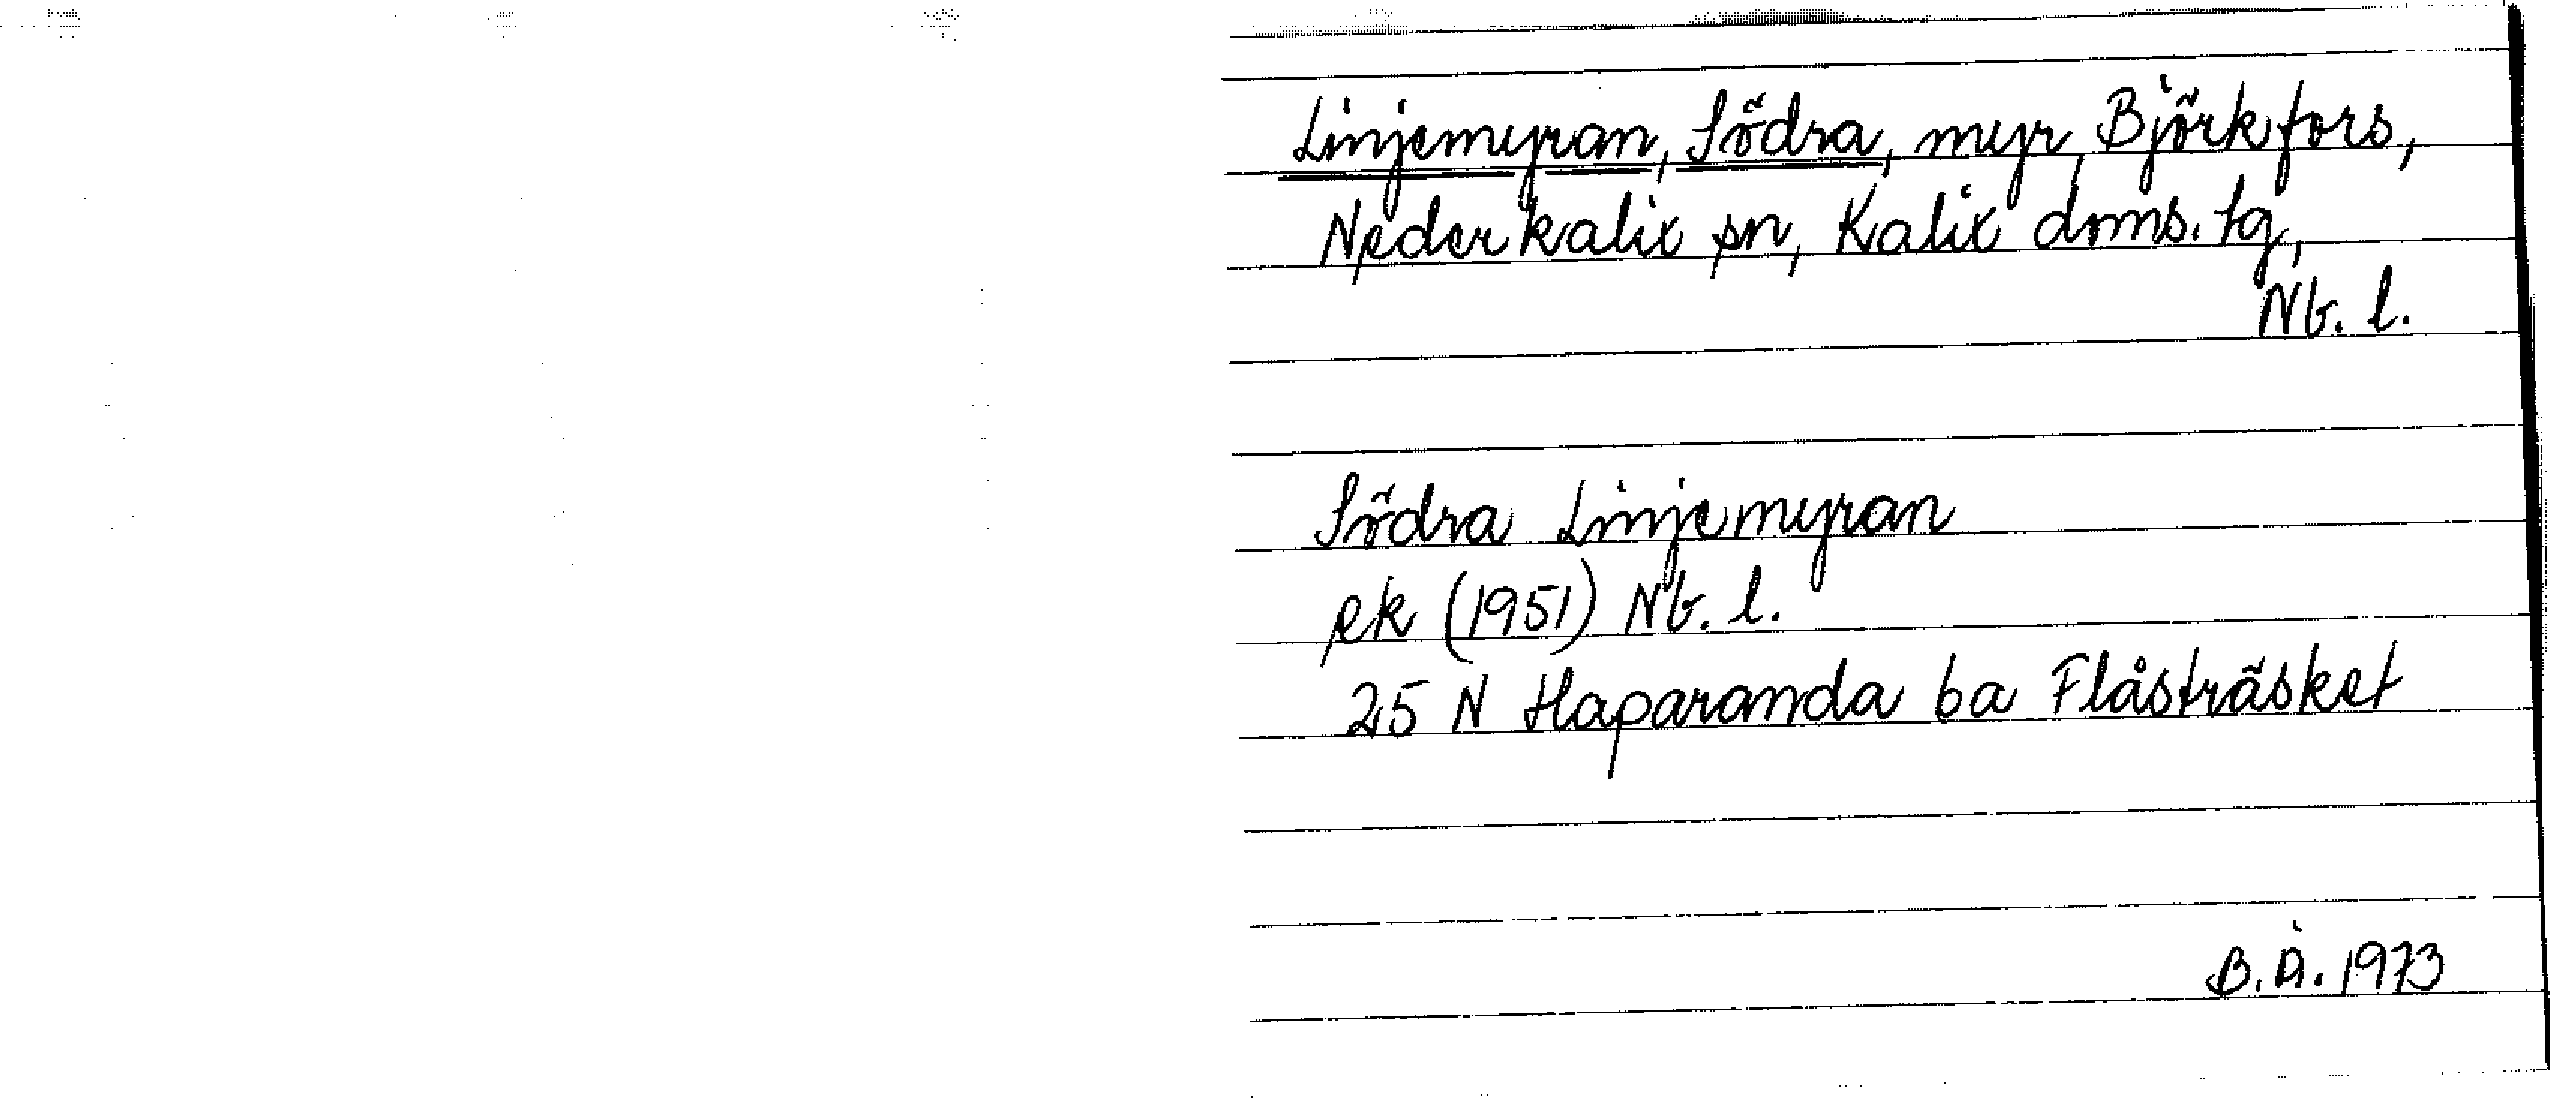 Linjemyran, Södra, myr, Björkfors,
Nederkalix sn, Kalix doms. tg,
Nb. l.
Södra Linjemyran
ek (1951) Nb. l.
25 N Haparanda ba Flåsträsket
B.Å. 1973